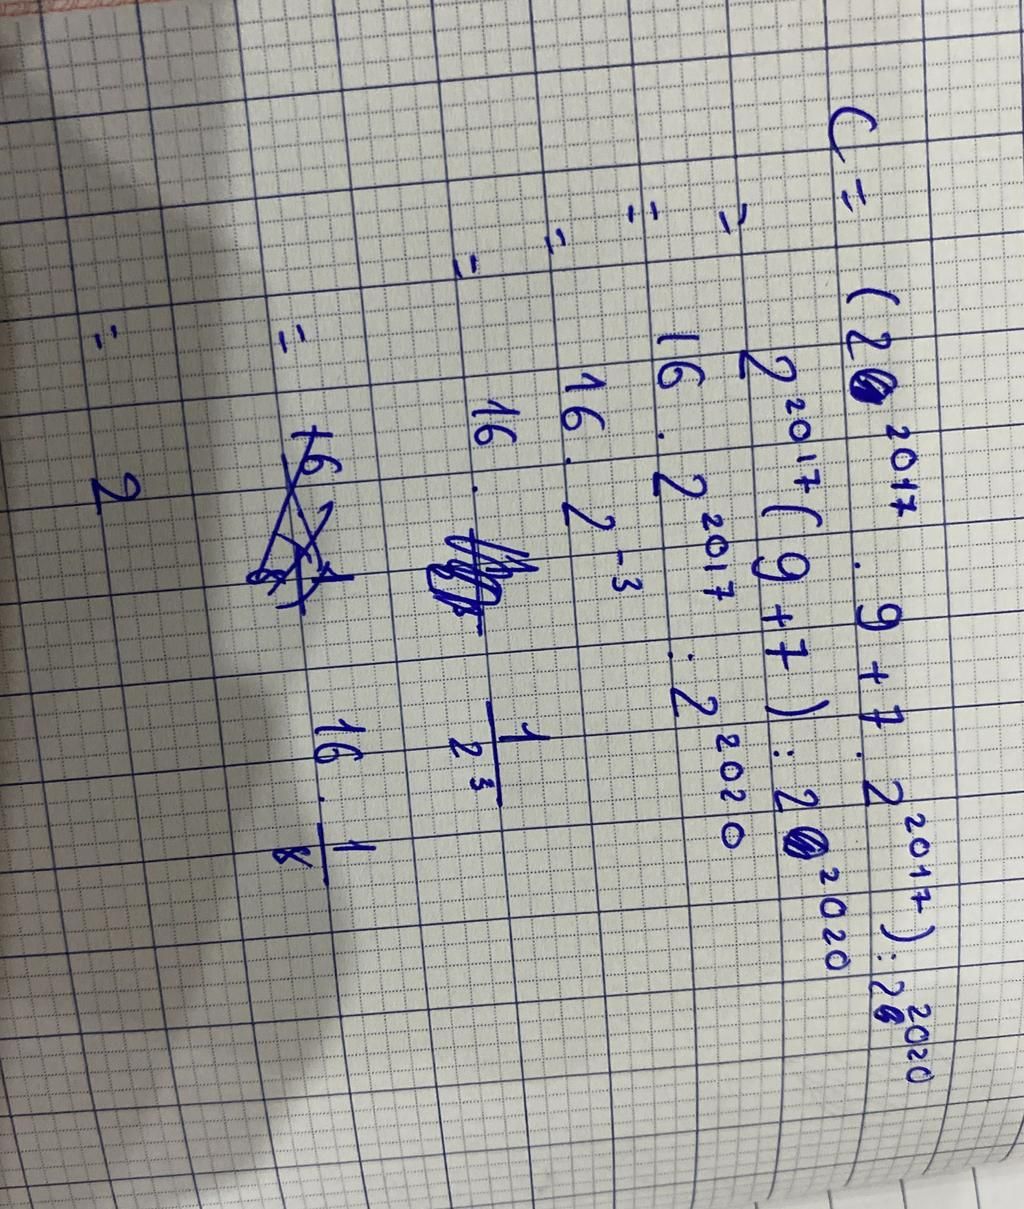 C = (2²⁰¹⁷ . 9 + 7 . 2²⁰¹⁷) : 2²⁰²⁰
= 2²⁰¹⁷ (9 + 7) : 2²⁰²⁰
= 16 . 2²⁰¹⁷ : 2²⁰²⁰
= 16 . 2⁻³
= 16 . 1/2³
= 16 . 1/8
= 2